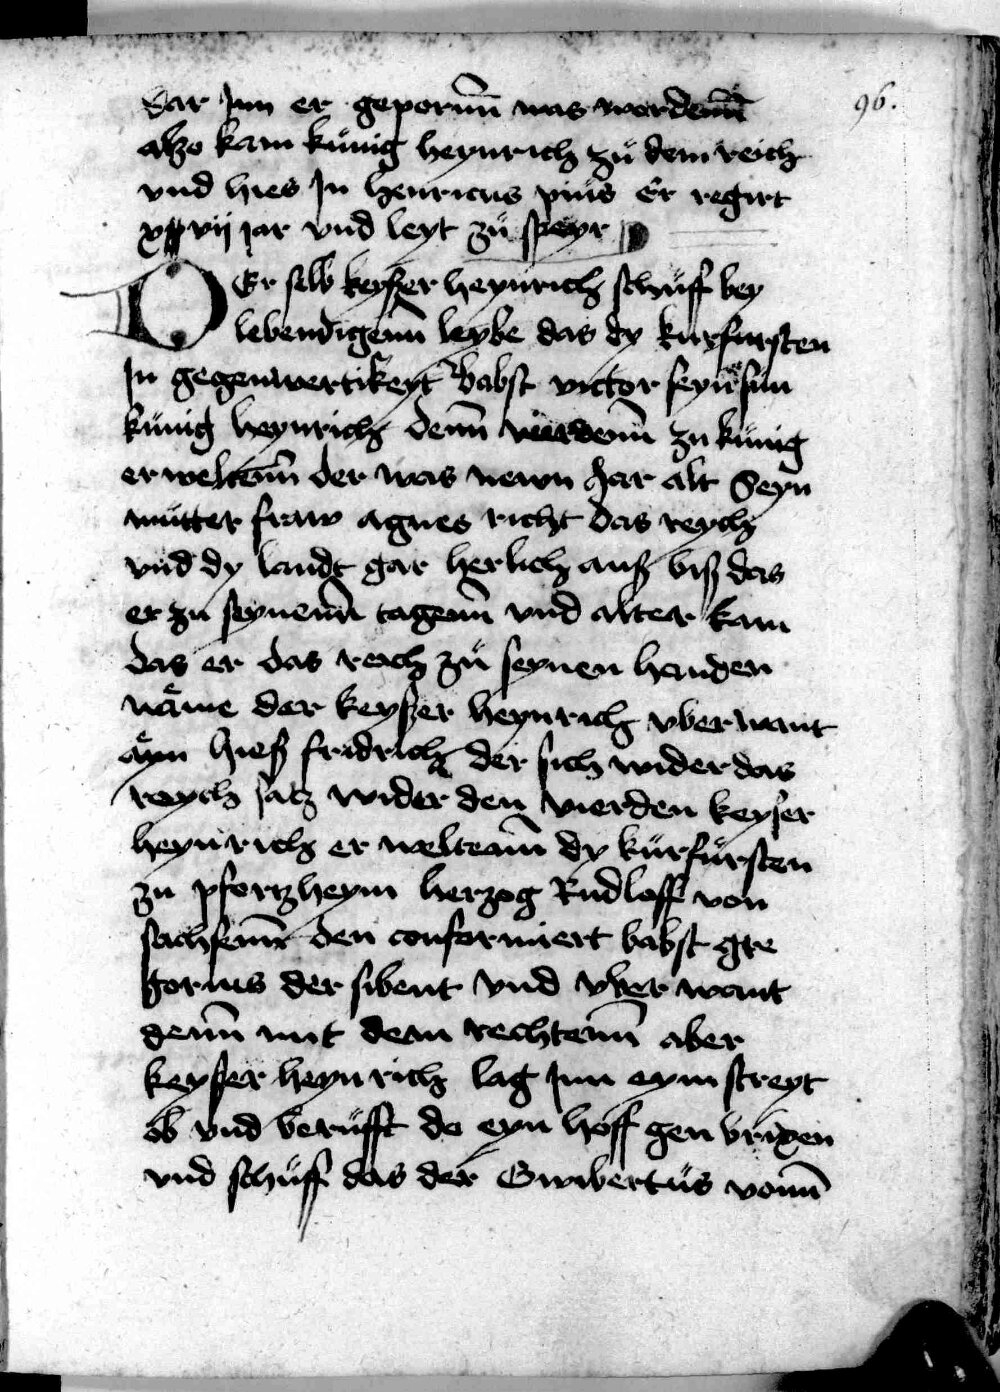 96.
dar Jnn er gepornn was wordenn
alzo kam künig heynrich zü dem reich
vnd hies Jn henricus piüs Er regirt
xvij jar vnd leyt zü speyr
DEr selb keyßer heynrich schüff bey
lebendigenn leybe das dy kurfursten
Jn gegenwertikeyt babst victor seyn sun
künig heynrich denn vierdenn zu künig
erweltenn der was newn Jar alt Seyn
mütter fraw agnes richt das reych
vnd dy landt gar herlich auß biß das
er zu seynenn tagenn vnd alter kam
das er das reich zü seynen handen
näme der keyßer heynrich vberwant
äyn hieß fridrich der sich wider das
reych satz wider den vierden keyser
heynrich er weltenn dy kürfürsten
zu pfortzheym herzog Rudloff von
sachsenn den conformiert babst gre
gorius der sibent vnd vber want
denn mit dem rechtenn aber
keysser heynrich lag Jnn eym streyt
ob vnd berüfft do eyn hoff gen brixen
vnd schüff das der Gwibertüs vonn